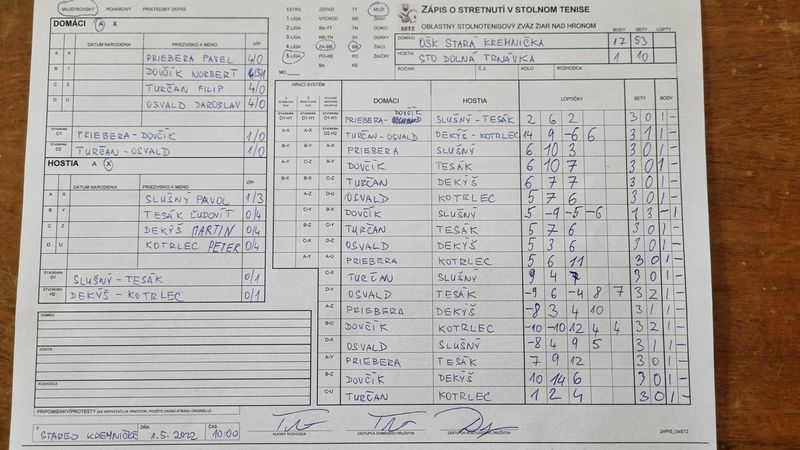 MAJSTROVSKÝ POHÁROVÝ PRIATEĽSKÝ ZÁPAS
DOMÁCI A X
DÁTUM NARODENIA PRIEZVISKO A MENO V/P
A X PRIEBERA PAVEL 4/0
B Y DOVČÍK NORBERT 3/1
C Z TURČAN FILIP 4/0
D U OSVALD JAROSLAV 4/0
ŠTVORHRA D1 PRIEBERA-DOVČÍK 1/0
ŠTVORHRA D2 TURČAN-OSVALD 1/0
HOSTIA A X
DÁTUM NARODENIA PRIEZVISKO A MENO V/P
A X SLUŠNÝ PAVOL 1/3
B Y TESÁK ĽUDOVÍT 0/4
C Z DEKÝŠ MARTIN 0/4
D U KOTRLEC PETER 0/4
SLUŠNÝ-TESÁK 0/1
ŠTVORHRA H2 DEKÝŠ-KOTRLEC 0/1
DOMÁCI
HOSTIA
ROZHODCA
PRIPOMIENKY/PROTESTY (AK NEPOSTAČUJE PRIESTOR, POUŽITE ZADNÚ STRANU ORIGINÁLU)
V STAREJ KREMNIČKE DŇA 1.5.2022 ČAS 10:00
EXTRA ZÁPAD TT MUŽI
1.LIGA VÝCHOD NR ŽENY
2.LIGA BA-TT TN DORCI
3.LIGA NR-TN ZA DORKY
4.LIGA ZA-BB BB ŽIACI
5.LIGA PO-KE PO ŽIAČKY
BA KE
MO
SSTZ
ZÁPIS O STRETNUTÍ V STOLNOM TENISE
OBLASTNÝ STOLNOTENISOVÝ ZVÄZ ŽIAR NAD HRONOM
BODY SETY LOPTY
DOMÁCI OŠK STARÁ KREMNIČKA 17 53
HOSTIA STO DOLNÁ TRNÁVKA 1 10
ROČNÍK Č.Z. KOLO ROZHODCA
HRACÍ SYSTÉM
DOMÁCI HOSTIA LOPTIČKY SETY BODY
ŠTVORHRA D1-H1 PRIEBERA-DOVČÍK SLUŠNÝ-TESÁK 2 6 2 3 0 1 -
A-X A-X ŠTVORHRA D2-H2 TURČAN-OSVALD DEKÝŠ-KOTRLEC 14 9 -6 6 3 1 1 -
B-Y B-Y A-X PRIEBERA SLUŠNÝ 6 10 3 3 0 1 -
A-Y C-Z B-Y DOVČÍK TESÁK 6 10 7 3 0 1 -
B-X B-X C-Z TURČAN DEKÝŠ 6 7 7 3 0 1 -
A-Z D-U OSVALD KOTRLEC 5 7 6 3 0 1 -
C-Y B-X DOVČÍK SLUŠNÝ 5 -9 -5 -6 1 3 - 1
B-Z C-Y TURČAN TESÁK 5 7 6 3 0 1 -
C-X D-Z OSVALD DEKÝŠ 5 3 6 3 0 1 -
A-Y A-U PRIEBERA KOTRLEC 5 6 11 3 0 1 -
C-X TURČAN SLUŠNÝ 9 4 7 3 0 1 -
D-Y OSVALD TESÁK -9 6 -4 8 7 3 2 1 -
A-Z PRIEBERA DEKÝŠ -8 3 4 10 3 1 1 -
B-U DOVČÍK KOTRLEC -10 -10 12 4 4 3 2 1 -
D-X OSVALD SLUŠNÝ -8 4 9 5 3 1 1 -
A-Y PRIEBERA TESÁK 7 9 12 3 0 1 -
B-Z DOVČÍK DEKÝŠ 10 14 6 3 0 1 -
C-U TURČAN KOTRLEC 1 2 4 3 0 1 -
HLAVNÝ ROZHODCA ZÁSTUPCA DOMÁCEHO DRUŽSTVA ZÁSTUPCA HOSŤUJÚCEHO DRUŽSTVA ZAPIS_OsSTZ